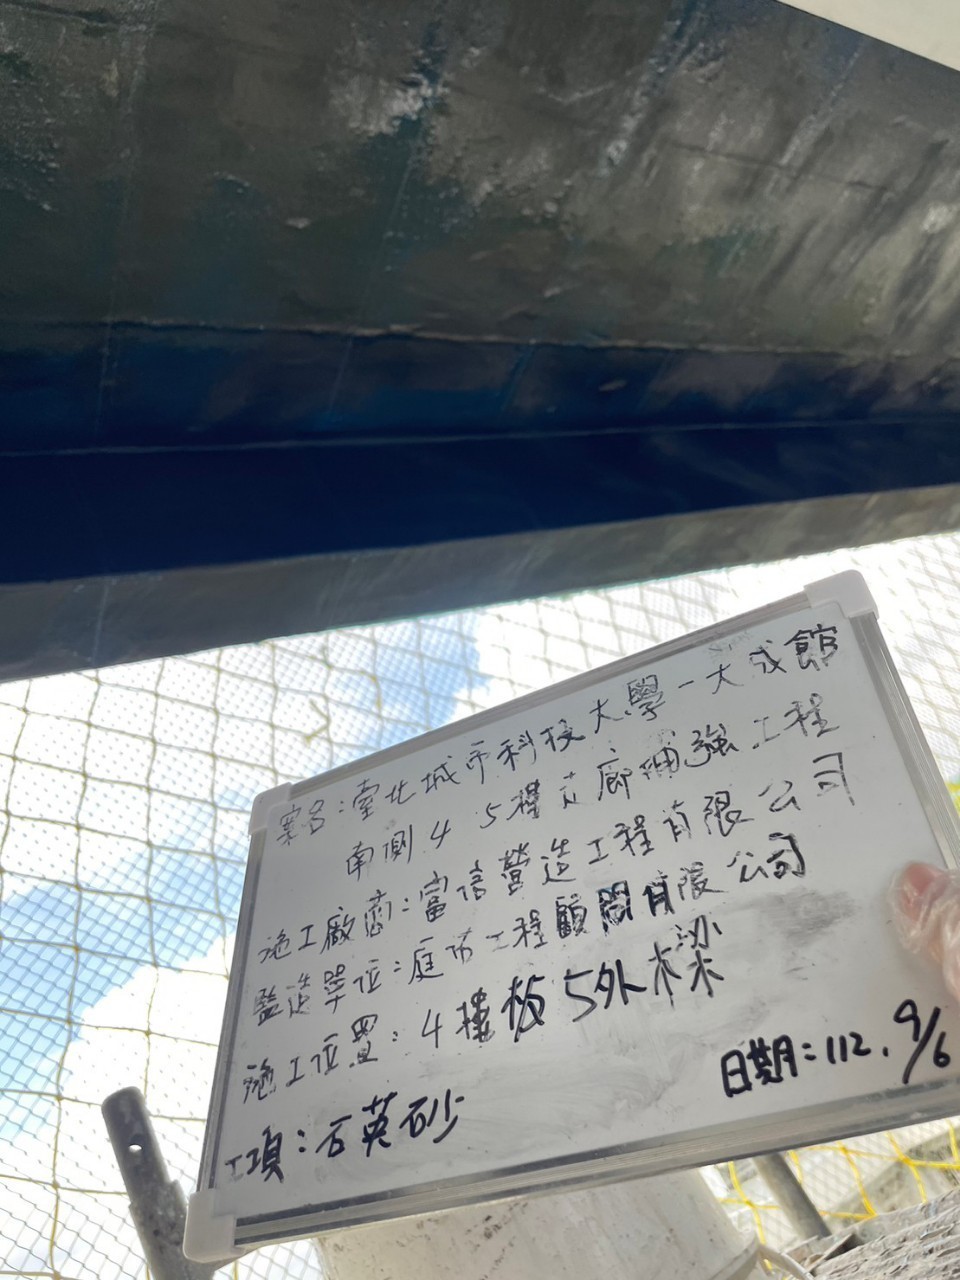 案名:臺北城市科技大學-大成館
南側4 5樓走廊補強工程
施工廠商:富信營造工程有限公司
監造單位:庭 工程顧問有限公司
施工位置:4樓板5外 樑
工項:石英砂
日期:112. 9/6